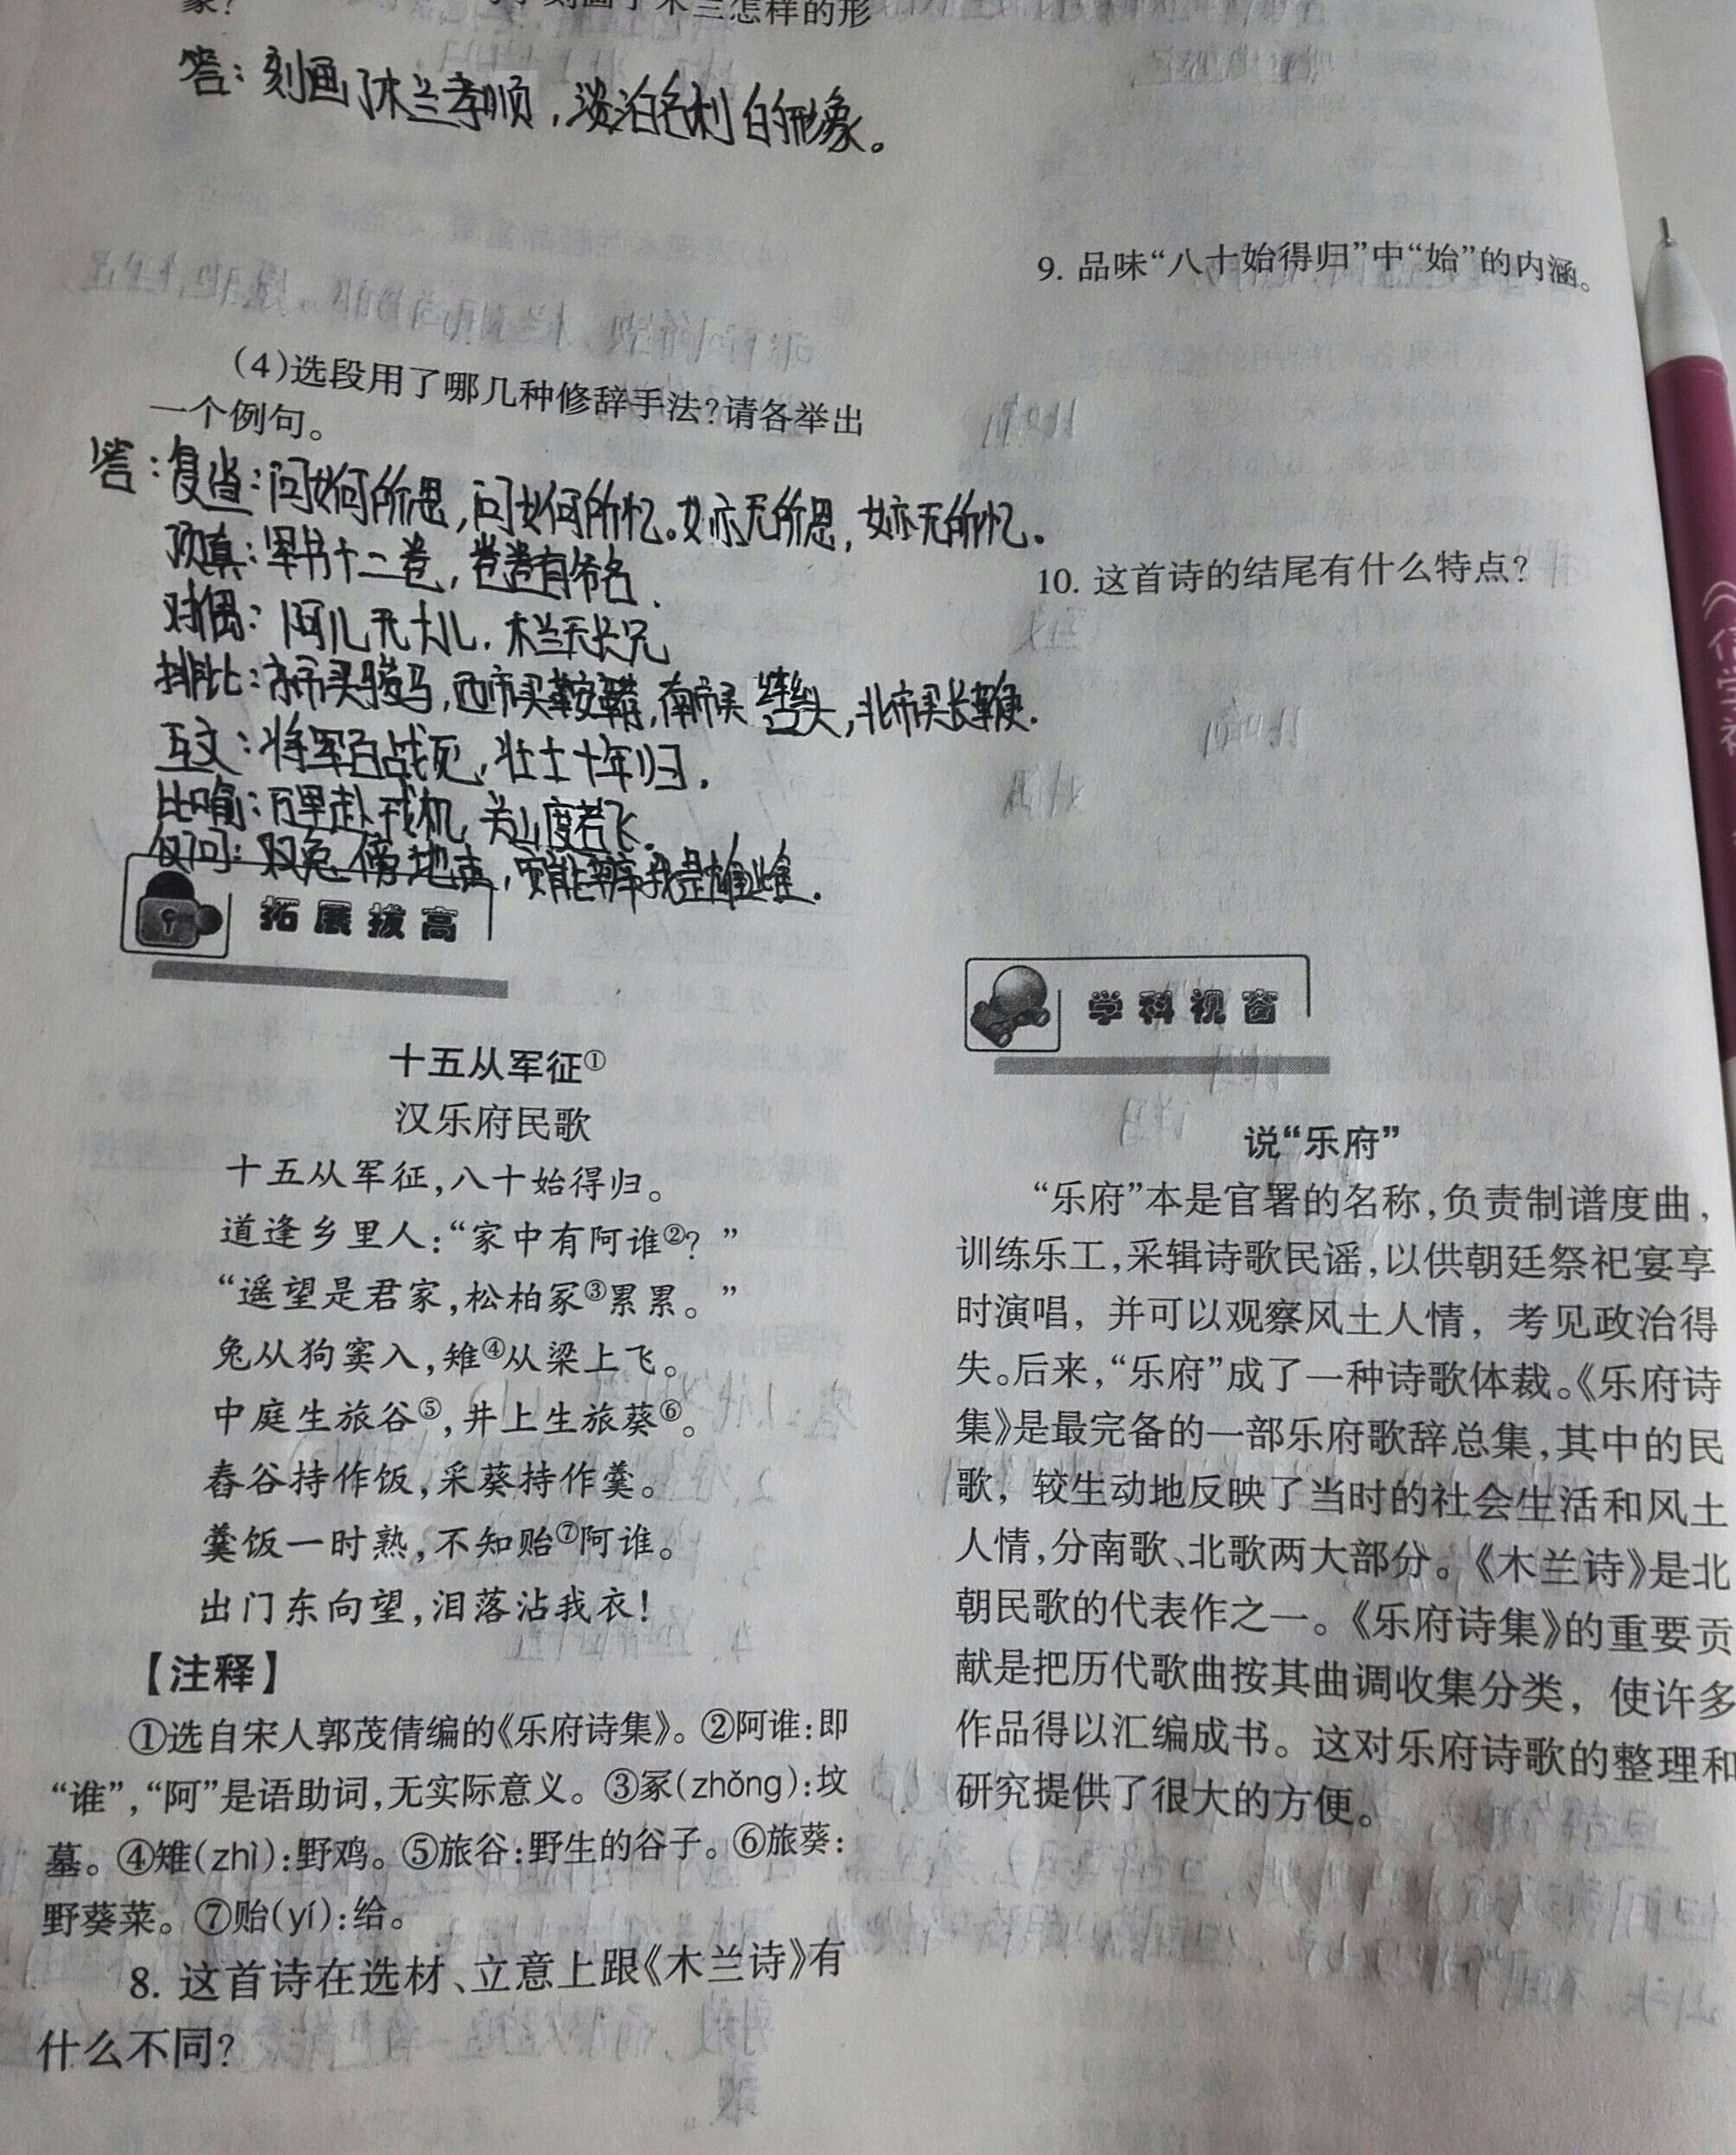 象?
刻画了木兰怎样的形
答：刻画了木兰孝顺，淡泊名利的形象。
(4)选段用了哪几种修辞手法?请各举出
一个例句。
答：复沓：问女何所思，问女何所忆。女亦无所思，女亦无所忆。
顶真：军书十二卷，卷卷有爷名.
对偶：阿儿无大儿.木兰无长兄
排比：东市买骏马，西市买鞍鞯，南市买辔头，北市买长鞭.
互文：将军百战死，壮士十年归.
比喻：万里赴戎机,关山度若飞.
反问：双兔傍地走，安能辨我是雄雌.
拓展拔高
十五从军征①
汉乐府民歌
十五从军征,八十始得归。
道逢乡里人:“家中有阿谁②?”
“遥望是君家,松柏冢③累累。”
兔从狗窦入,雉④从梁上飞。
中庭生旅谷⑤,井上生旅葵⑥。
舂谷持作饭,采葵持作羹。
羹饭一时熟,不知贻⑦阿谁。
出门东向望,泪落沾我衣!
【注释】
①选自宋人郭茂倩编的《乐府诗集》。②阿谁:即
“谁”,“阿”是语助词,无实际意义。③冢(zhǒng):坟
墓。④雉(zhì):野鸡。⑤旅谷:野生的谷子。⑥旅葵:
野葵菜。⑦贻(yí):给。
8. 这首诗在选材、立意上跟《木兰诗》有
什么不同?
9. 品味“八十始得归”中“始”的内涵。
10. 这首诗的结尾有什么特点?
学科视窗
说“乐府”
“乐府”本是官署的名称,负责制谱度曲,
训练乐工,采辑诗歌民谣,以供朝廷祭祀宴享
时演唱,并可以观察风土人情,考见政治得
失。后来,“乐府”成了一种诗歌体裁。《乐府诗
集》是最完备的一部乐府歌辞总集,其中的民
歌,较生动地反映了当时的社会生活和风土
人情,分南歌、北歌两大部分。《木兰诗》是北
朝民歌的代表作之一。《乐府诗集》的重要贡
献是把历代歌曲按其曲调收集分类,使许多
作品得以汇编成书。这对乐府诗歌的整理和
研究提供了很大的方便。